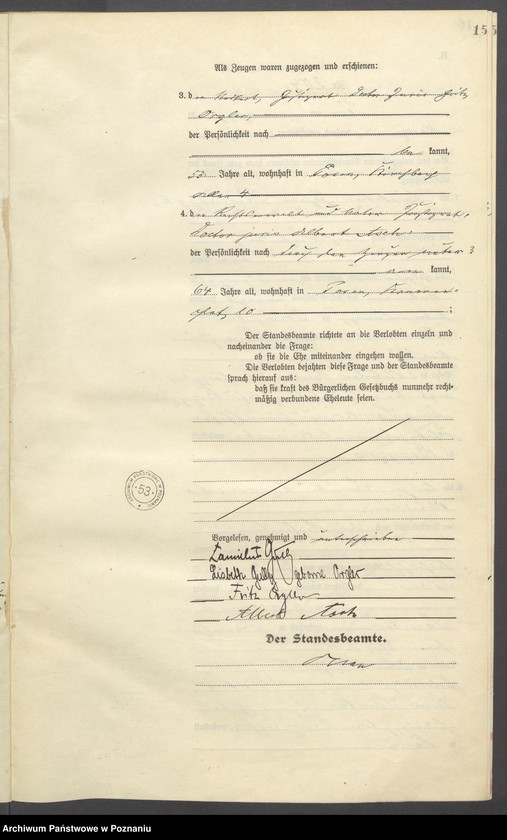 155
Als Zeugen waren zugezogen und erschienen:
3. der Justizrat Doctor Juris Fritz
Orgler,
der Persönlichkeit nach
be kannt,
53 Jahre alt, wohnhaft in Posen,
4
4. der Rechtsanwalt und Notar Justizrat,
Doctor juris Albert Asch
der Persönlichkeit nach durch den Zeugen unter 3
kannt,
64 Jahre alt, wohnhaft in Posen,
platz 10 ;
Der Standesbeamte richtete an die Verlobten einzeln und
nacheinander die Frage:
ob sie die Ehe miteinander eingehen wollen.
Die Verlobten bejahten diese Frage und der Standesbeamte
sprach hierauf aus:
daß sie kraft des Bürgerlichen Gesetzbuchs nunmehr recht-
mäßig verbundene Eheleute seien.
ARCHIWUM PAŃSTWOWE W POZNANIU
53
Vorgelesen, genehmigt und unterschrieben
Lisbeth geborne Orgler
Fritz Orgler
Albert Asch
Der Standesbeamte.
Archiwum Państwowe w Poznaniu